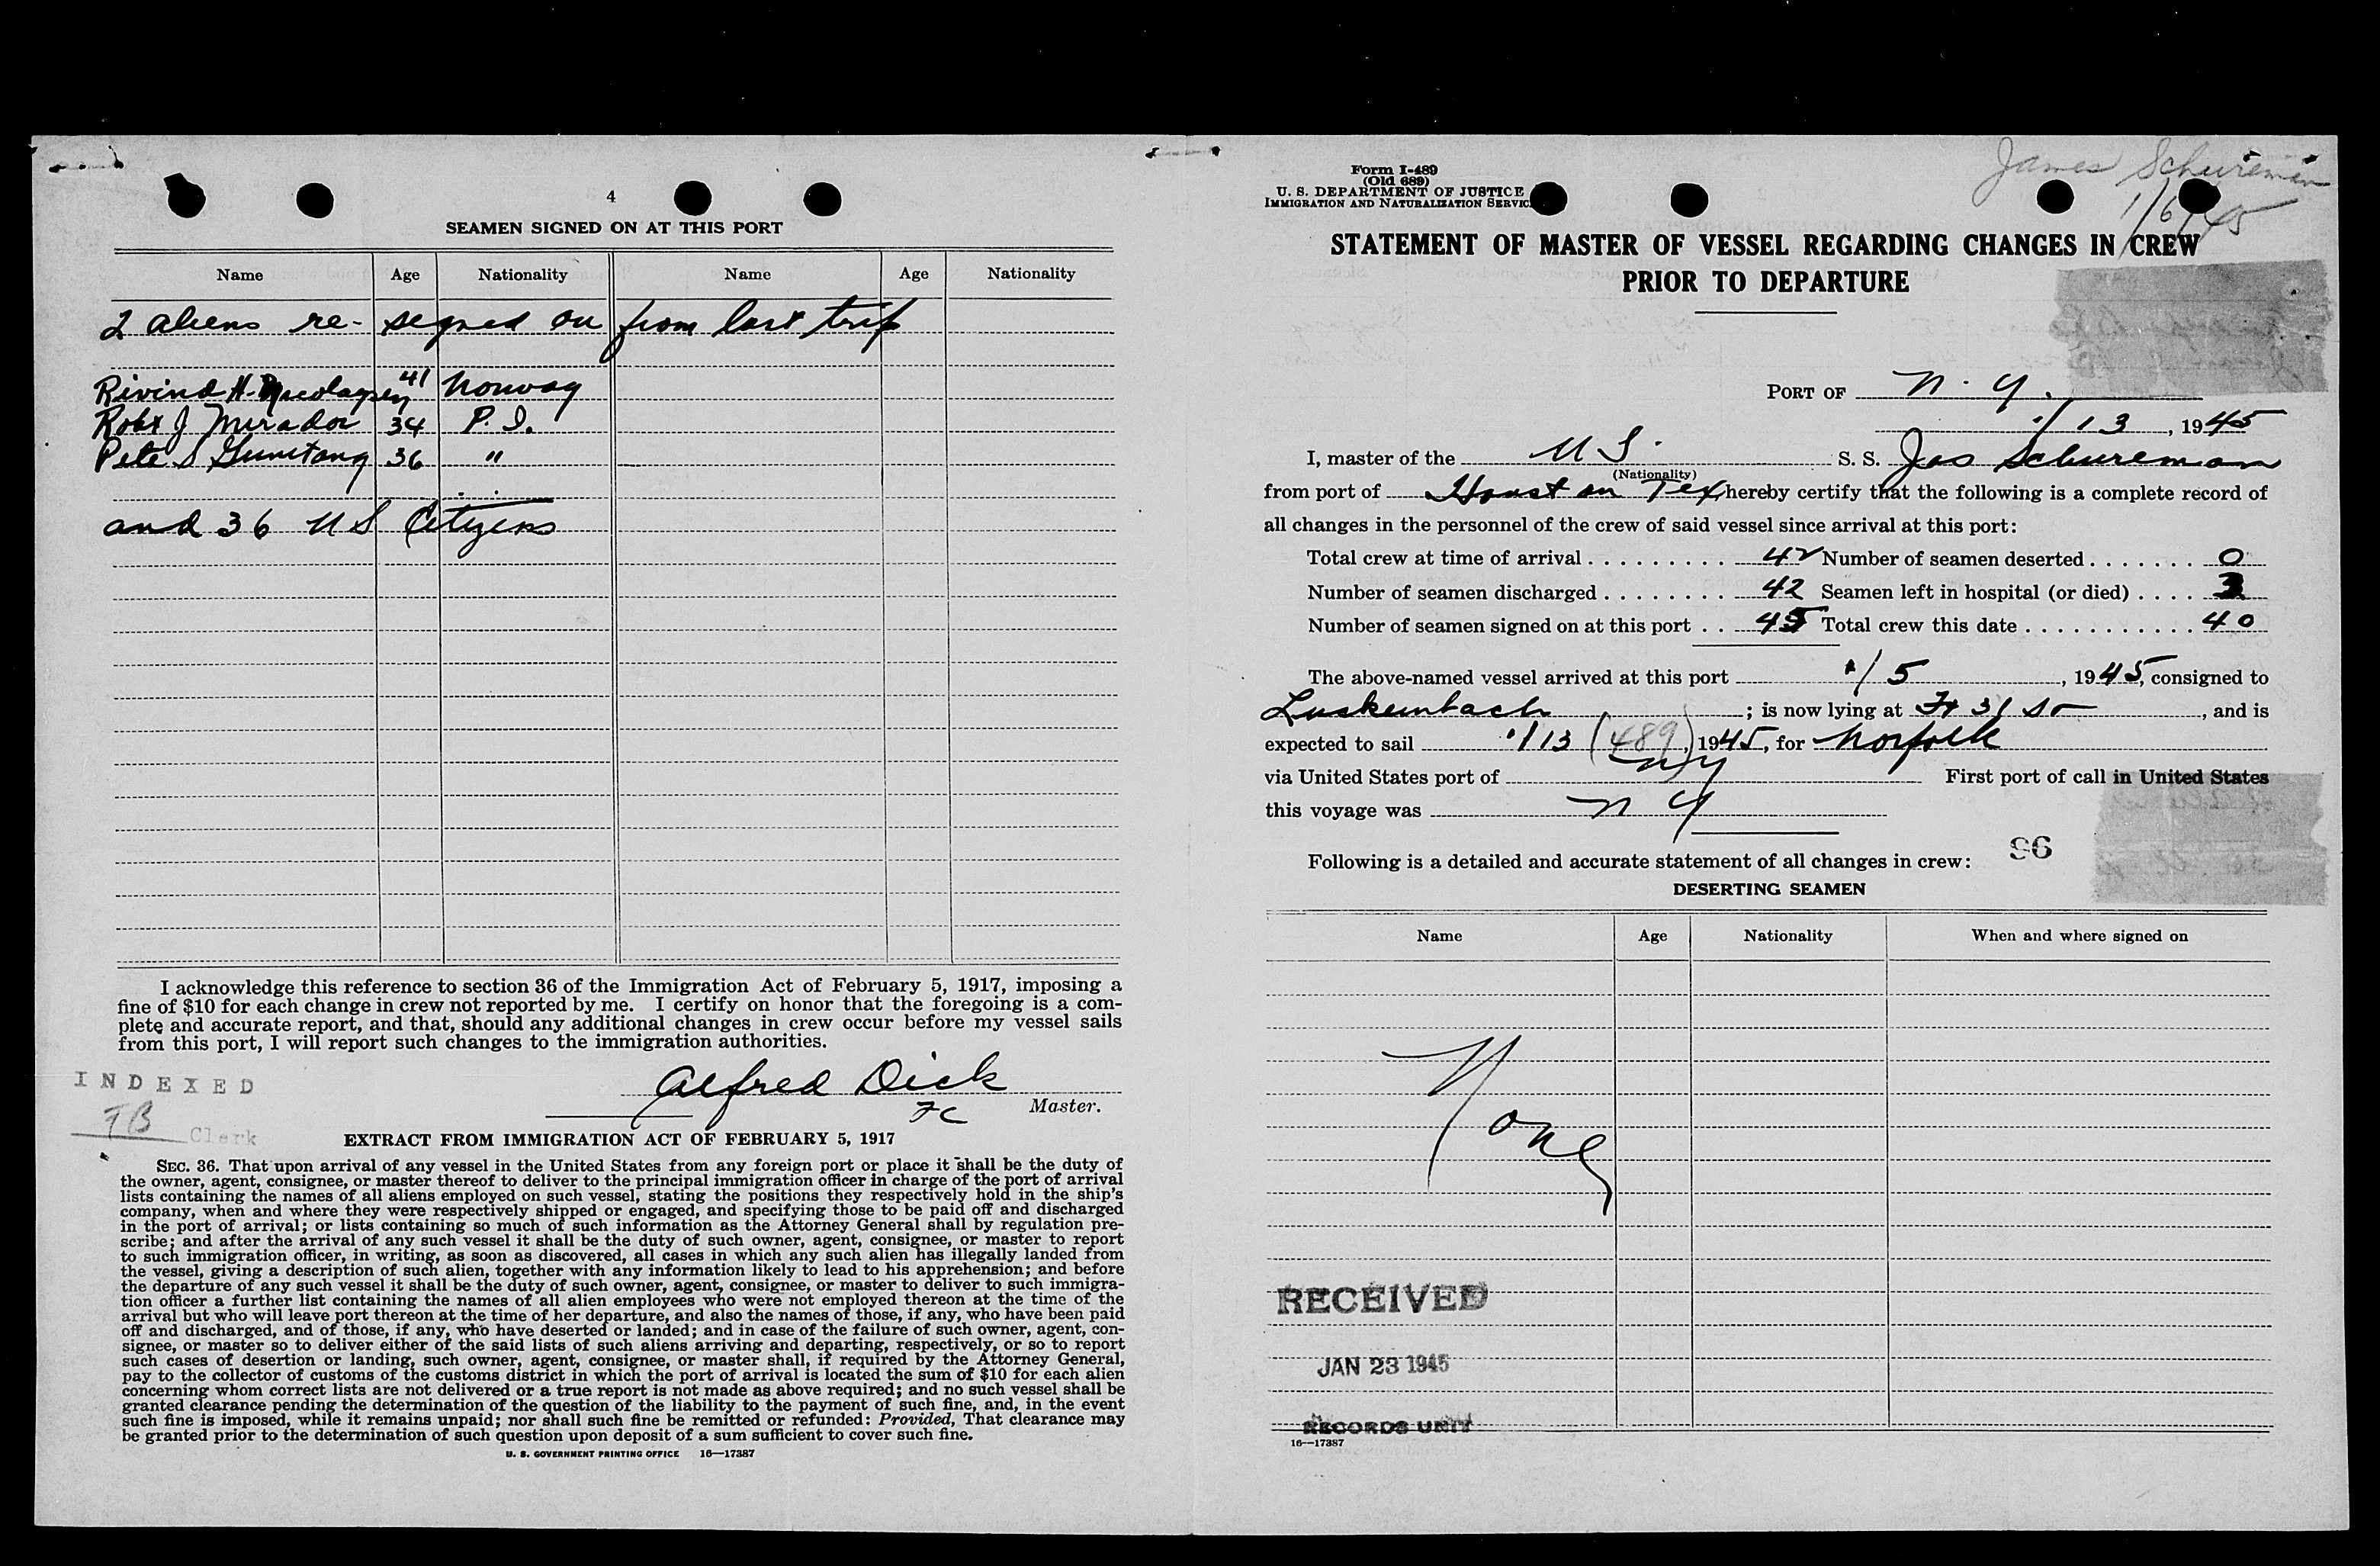 4
SEAMEN SIGNED ON AT THIS PORT
Name Age Nationality Name Age Nationality
2 aliens re-signed on from last trip
H. 41 Norway
Robt J Mirador 34 P. I.
Pete S 36 "
and 36 U S Citizens
I acknowledge this reference to section 36 of the Immigration Act of February 5, 1917, imposing a
fine of $10 for each change in crew not reported by me. I certify on honor that the foregoing is a com-
plete and accurate report, and that, should any additional changes in crew occur before my vessel sails
from this port, I will report such changes to the immigration authorities.
INDEXED
TB Clerk
Alfred Dick
Master.
EXTRACT FROM IMMIGRATION ACT OF FEBRUARY 5, 1917
SEC. 36. That upon arrival of any vessel in the United States from any foreign port or place it shall be the duty of
the owner, agent, consignee, or master thereof to deliver to the principal immigration officer in charge of the port of arrival
lists containing the names of all aliens employed on such vessel, stating the positions they respectively hold in the ship's
company, when and where they were respectively shipped or engaged, and specifying those to be paid off and discharged
in the port of arrival; or lists containing so much of such information as the Attorney General shall by regulation pre-
scribe; and after the arrival of any such vessel it shall be the duty of such owner, agent, consignee, or master to report
to such immigration officer, in writing, as soon as discovered, all cases in which any such alien has illegally landed from
the vessel, giving a description of such alien, together with any information likely to lead to his apprehension; and before
the departure of any such vessel it shall be the duty of such owner, agent, consignee, or master to deliver to such immigra-
tion officer a further list containing the names of all alien employees who were not employed thereon at the time of the
arrival but who will leave port thereon at the time of her departure, and also the names of those, if any, who have been paid
off and discharged, and of those, if any, who have deserted or landed; and in case of the failure of such owner, agent, con-
signee, or master so to deliver either of the said lists of such aliens arriving and departing, respectively, or so to report
such cases of desertion or landing, such owner, agent, consignee, or master shall, if required by the Attorney General,
pay to the collector of customs of the customs district in which the port of arrival is located the sum of $10 for each alien
concerning whom correct lists are not delivered or a true report is not made as above required; and no such vessel shall be
granted clearance pending the determination of the question of the liability to the payment of such fine, and, in the event
such fine is imposed, while it remains unpaid; nor shall such fine be remitted or refunded: Provided, That clearance may
be granted prior to the determination of such question upon deposit of a sum sufficient to cover such fine.
U. S. GOVERNMENT PRINTING OFFICE 16—17387
James Schureman
1/6/45
Form I-489
(Old 689)
U. S. DEPARTMENT OF JUSTICE
IMMIGRATION AND NATURALIZATION SERVIC
STATEMENT OF MASTER OF VESSEL REGARDING CHANGES IN CREW
PRIOR TO DEPARTURE
PORT OF N. Y.
1/13, 1945
I, master of the U S. S. S. Jas Schureman
(Nationality)
from port of Houston Tex hereby certify that the following is a complete record of
all changes in the personnel of the crew of said vessel since arrival at this port:
Total crew at time of arrival 42 Number of seamen deserted 0
Number of seamen discharged 42 Seamen left in hospital (or died)
Number of seamen signed on at this port Total crew this date 40
The above-named vessel arrived at this port 1/5, 1945, consigned to
Luckenbach; is now lying at Ft 31 St, and is
expected to sail 1/13 (489) 1945, for Norfolk
via United States port of N Y First port of call in United States
this voyage was N Y
Following is a detailed and accurate statement of all changes in crew: 96
DESERTING SEAMEN
Name Age Nationality When and where signed on
None
RECEIVED
JAN 23 1945
RECORDS UNIT
16—17387